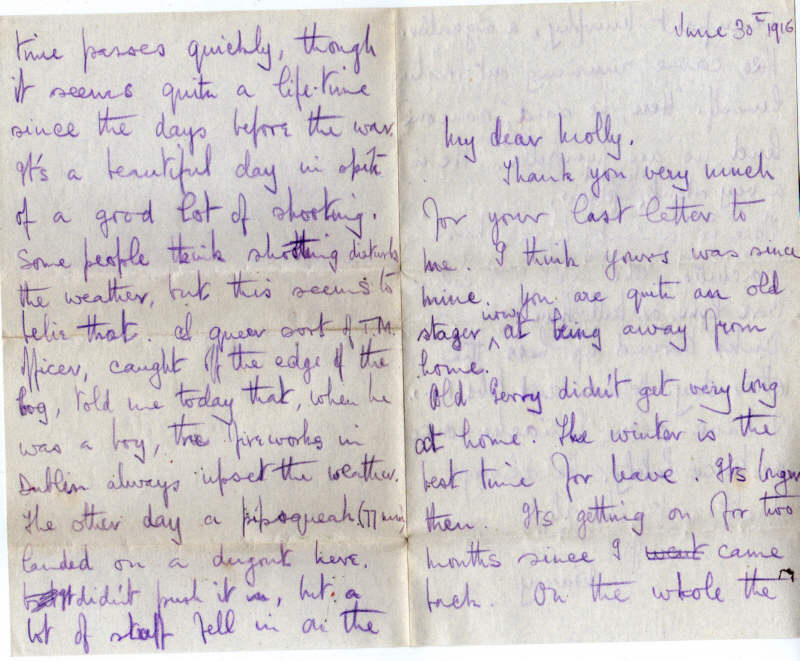 June 30th 1916
My dear Molly.
Thank you very much
for your last letter to
me. I think yours was since
mine. You are quite an old
stager now at being away from
home.
Old Gerry didn't get very long
at home. The winter is the
best time for leave. Its longer
then. Its getting on for two
months since I went came
back. On the whole the
time passes quickly, though
it seems quite a life-time
since the days before the war.
It's a beautiful day in spite
of a good lot of shooting.
Some people think shooting disturbs
the weather, but this seems to
belie that. A queer sort of T.M.
officer, caught off the edge of the
bog, told me today that, when he
was a boy, the fireworks in
Dublin always upset the weather.
The other day a pipsqueak (77 mm)
landed on a dugout here.
It didn't push it in, but a
lot of stuff fell in on the